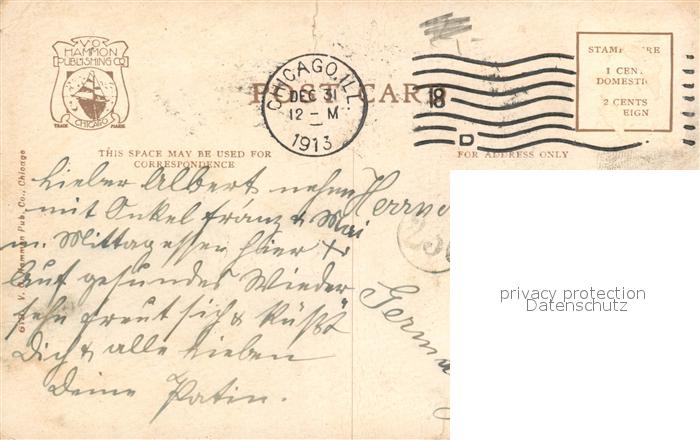 V.O.
HAMMON
PUBLISHING CO
TRADE MARK
CHICAGO
CHICAGO, ILL.
DEC 31
12 - M
1913
18
D
POST CARD
STAMP HERE
1 CENT
DOMESTIC
2 CENTS
EIGN
THIS SPACE MAY BE USED FOR
CORRESPONDENCE
FOR ADDRESS ONLY
V. O. Hammon Pub. Co., Chicago
Lieber Albert nehmen
mit Onkel Franz &
Mittagessen hier
Auf gesundes Wieder
sehn freut sich & küßt
Dich & alle Lieben
Deine Patin.
Herrn
Germa
privacy protection
Datenschutz